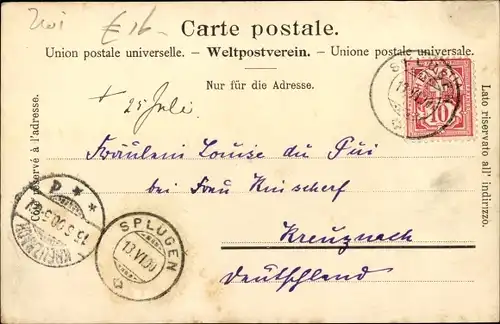 Carte postale.
Union postale universelle. - Weltpostverein. - Unione postale universale.
Nur für die Adresse.
Côté réservé à l'adresse.
Lato riservato all' indirizzo.
+ 25 Juli
10
Fräulein Louise du Pui
bei Frau
Kreuznach
Deutschland
SPLÜGEN
13.VI.00
KREUZNACH